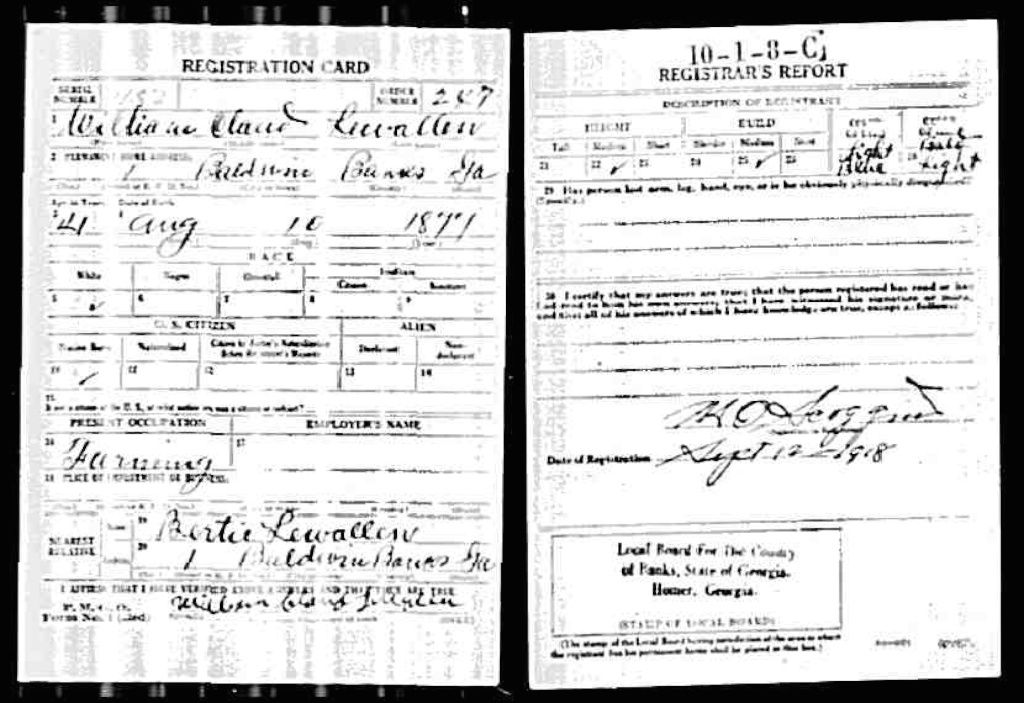 REGISTRATION CARD
SERIAL NUMBER
ORDER NUMBER 247
1 William Claud Lewallen
2 PERMANENT HOME ADDRESS:
1 Baldwin Banks Ga
Age in Years Date of Birth
41 Aug 10 1877
RACE
White Negro Oriental Indian
Citizen Noncitizen
5 ✓ 6 7 8 9
U. S. CITIZEN ALIEN
Native Born Naturalized Citizen by Father's Naturalization Before Registrant's Majority Declarant Non-declarant
10 ✓ 11 12 13 14
15
If not a citizen of the U. S., of what nation are you a citizen or subject?
PRESENT OCCUPATION EMPLOYER'S NAME
16 Farming 17
18 PLACE OF EMPLOYMENT OR BUSINESS:
NEAREST RELATIVE Name 19 Bertie Lewallen
Address 20 1 Baldwin Banks Ga
I AFFIRM THAT I HAVE VERIFIED ABOVE ANSWERS AND THAT THEY ARE TRUE
P. M. G. O.
Form No. 1 (Red)
William Claud Lewallen
10-1-8-C
REGISTRAR'S REPORT
DESCRIPTION OF REGISTRANT
HEIGHT BUILD
Tall Medium Short Slender Medium Stout
21 22 ✓ 23 24 25 ✓ 26
light
28 Light
29 Has person lost arm, leg, hand, eye, or is he obviously physically disqualified?
(Specify.)
30 I certify that my answers are true; that the person registered has read or has
had read to him his own answers; that I have witnessed his signature or mark,
and that all of his answers of which I have knowledge are true, except as follows:
Date of Registration Sept 12 - 1918
Local Board For The County
of Banks, State of Georgia.
Homer, Georgia.
(STAMP OF LOCAL BOARD)
(The stamp of the Local Board having jurisdiction of the area in which
the registrant has his permanent home shall be placed in this box.)